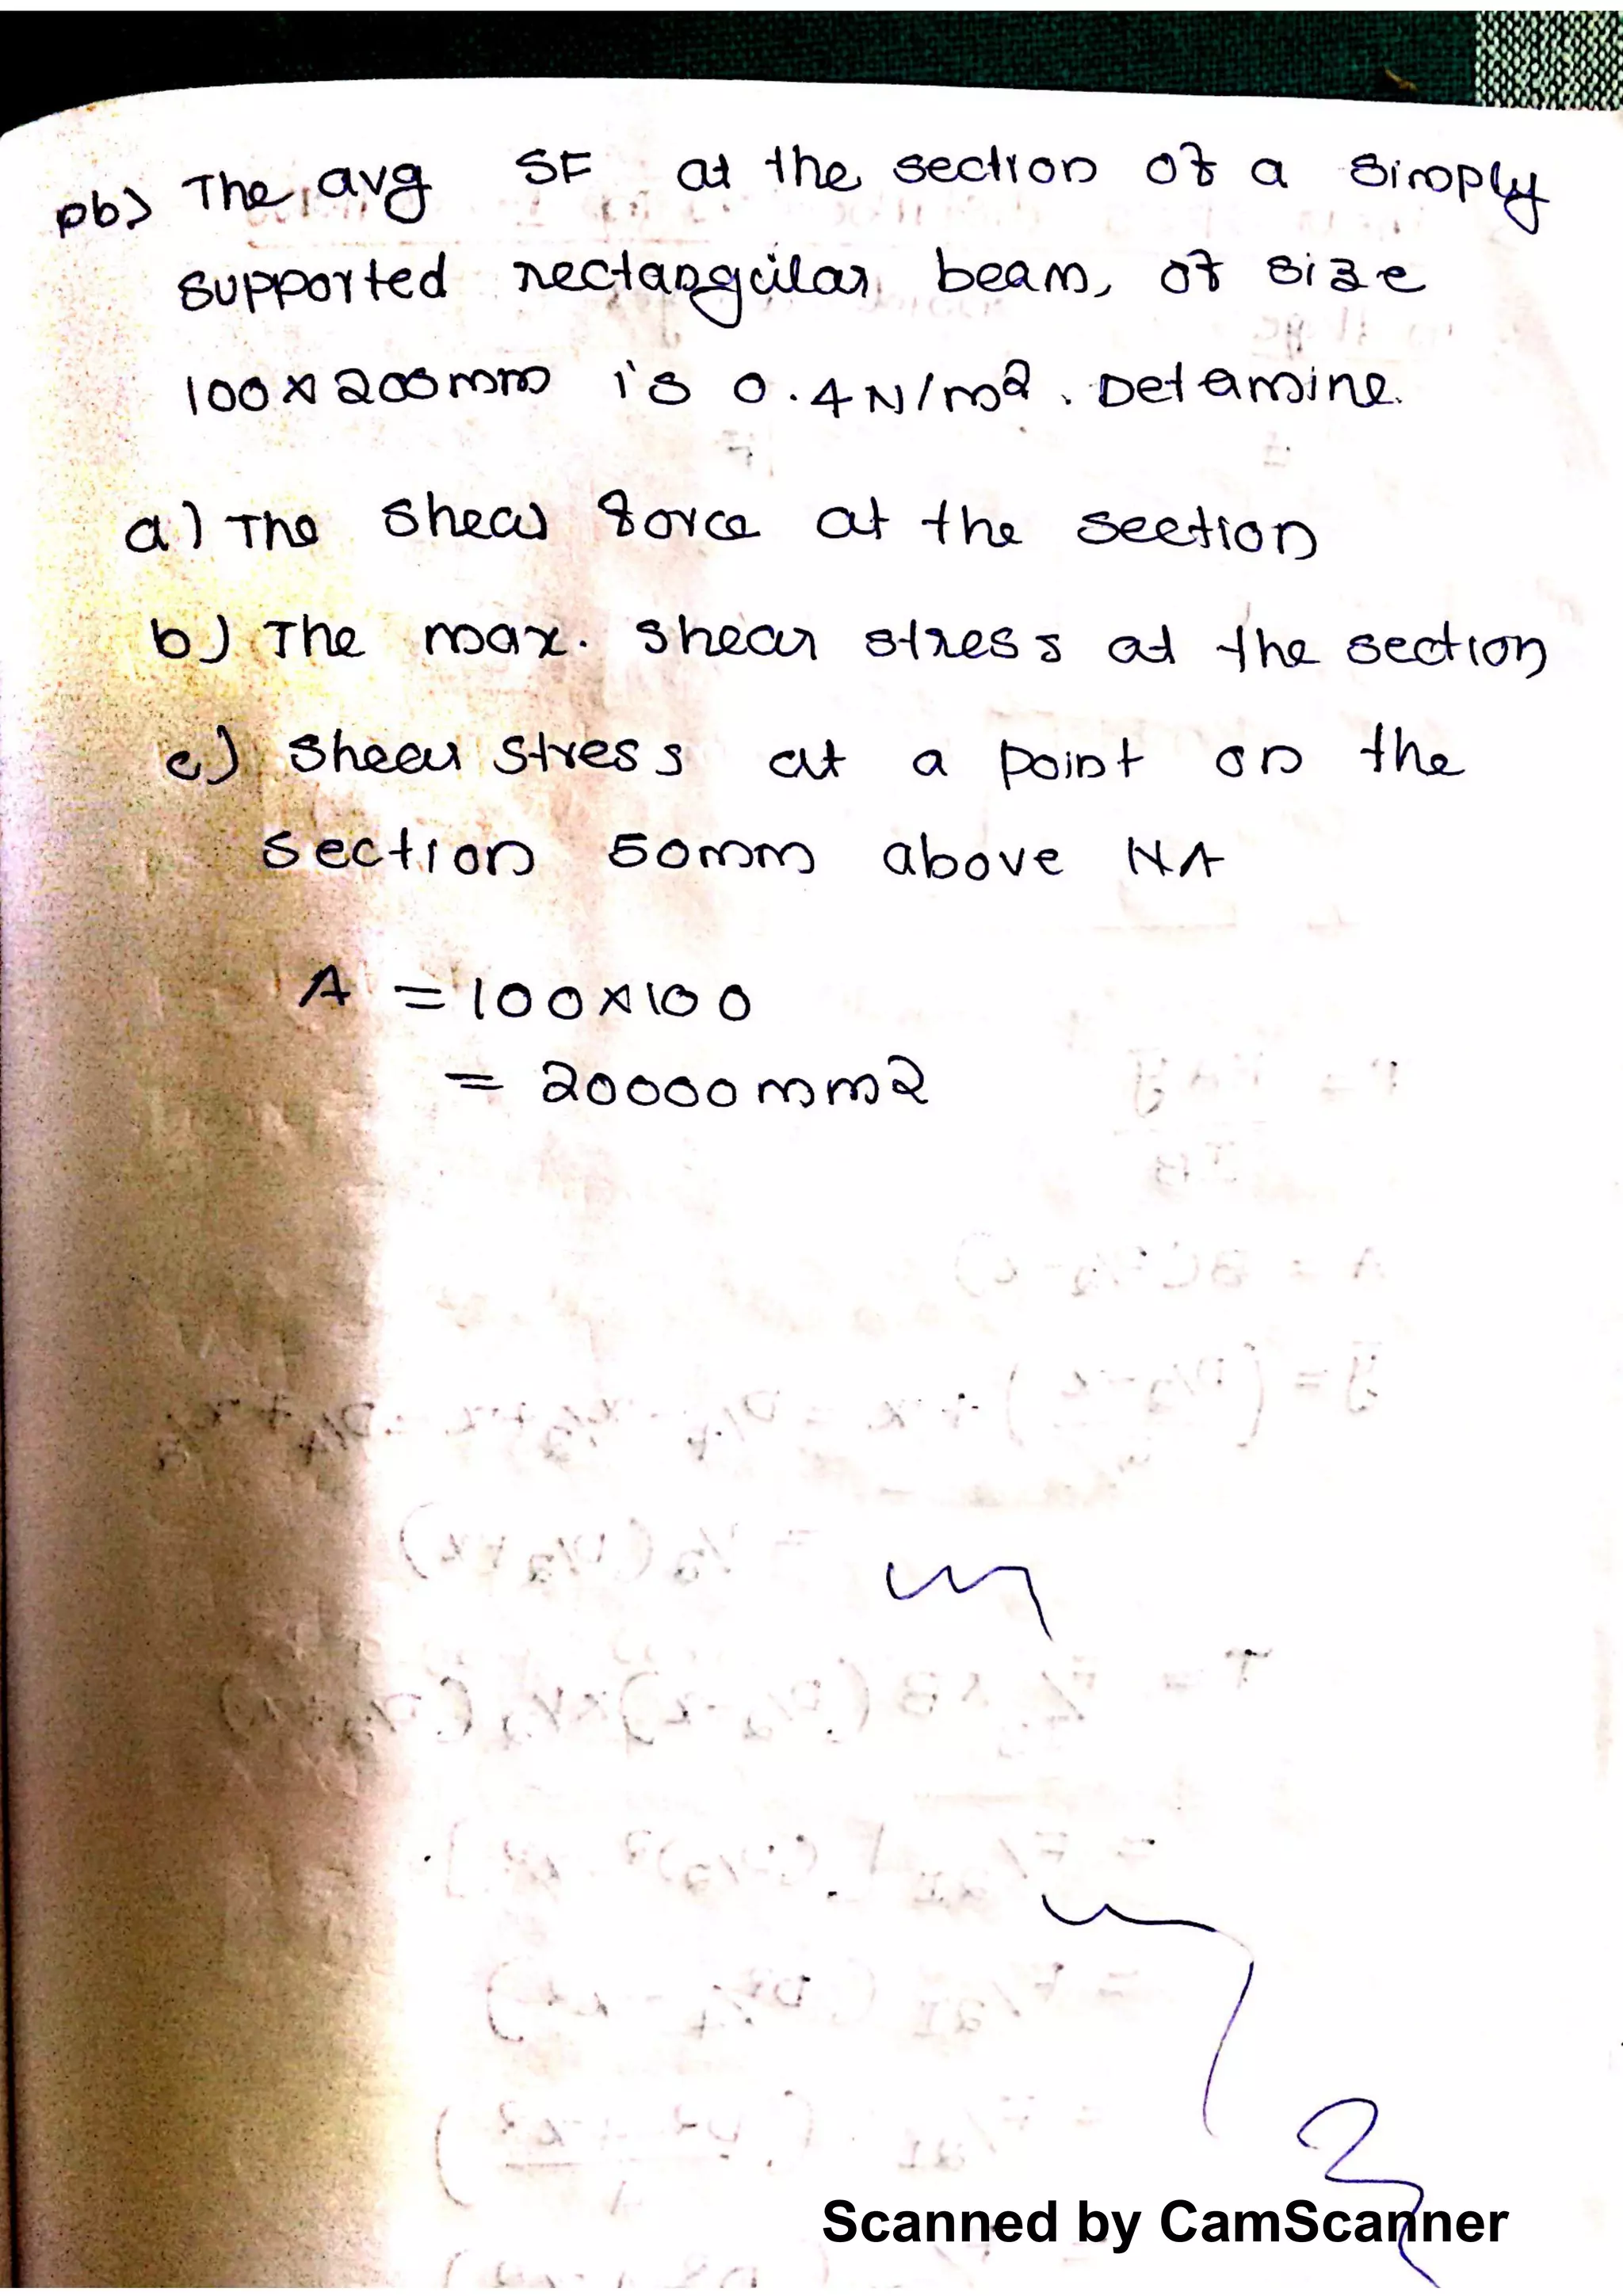 pb) The avg SF at the section of a simply
supported rectangular beam, of size
100 x 200mm is 0.4 N/m2. Detamine.
a) The shear force at the section
b) The max. shear stress at the section
c) shear stress at a point on the
section 50mm above NA
A = 100x100
= 20000 mm2
Scanned by CamScanner